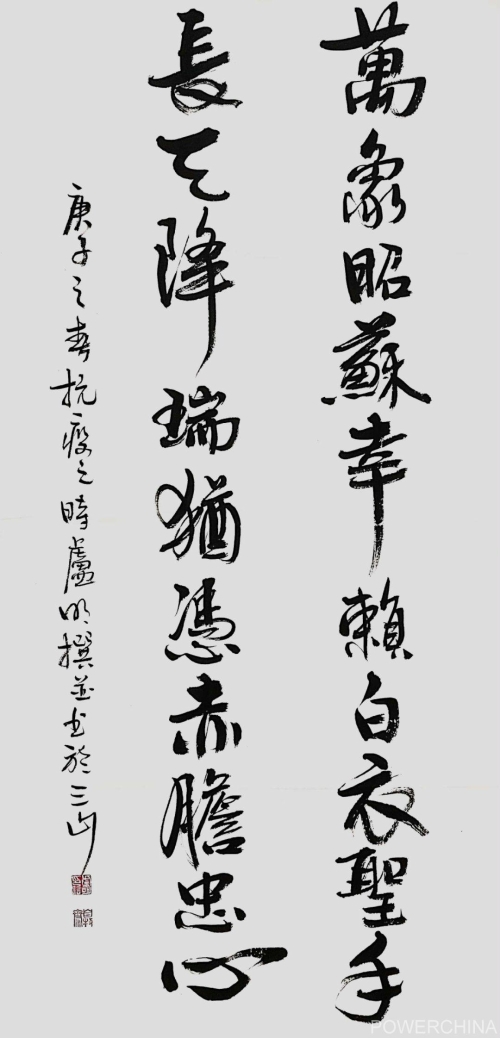 萬象昭蘇幸賴白衣聖手
長天降瑞猶憑赤膽忠心
庚子之春抗疫之時盧明撰並书於三山
POWERCHINA